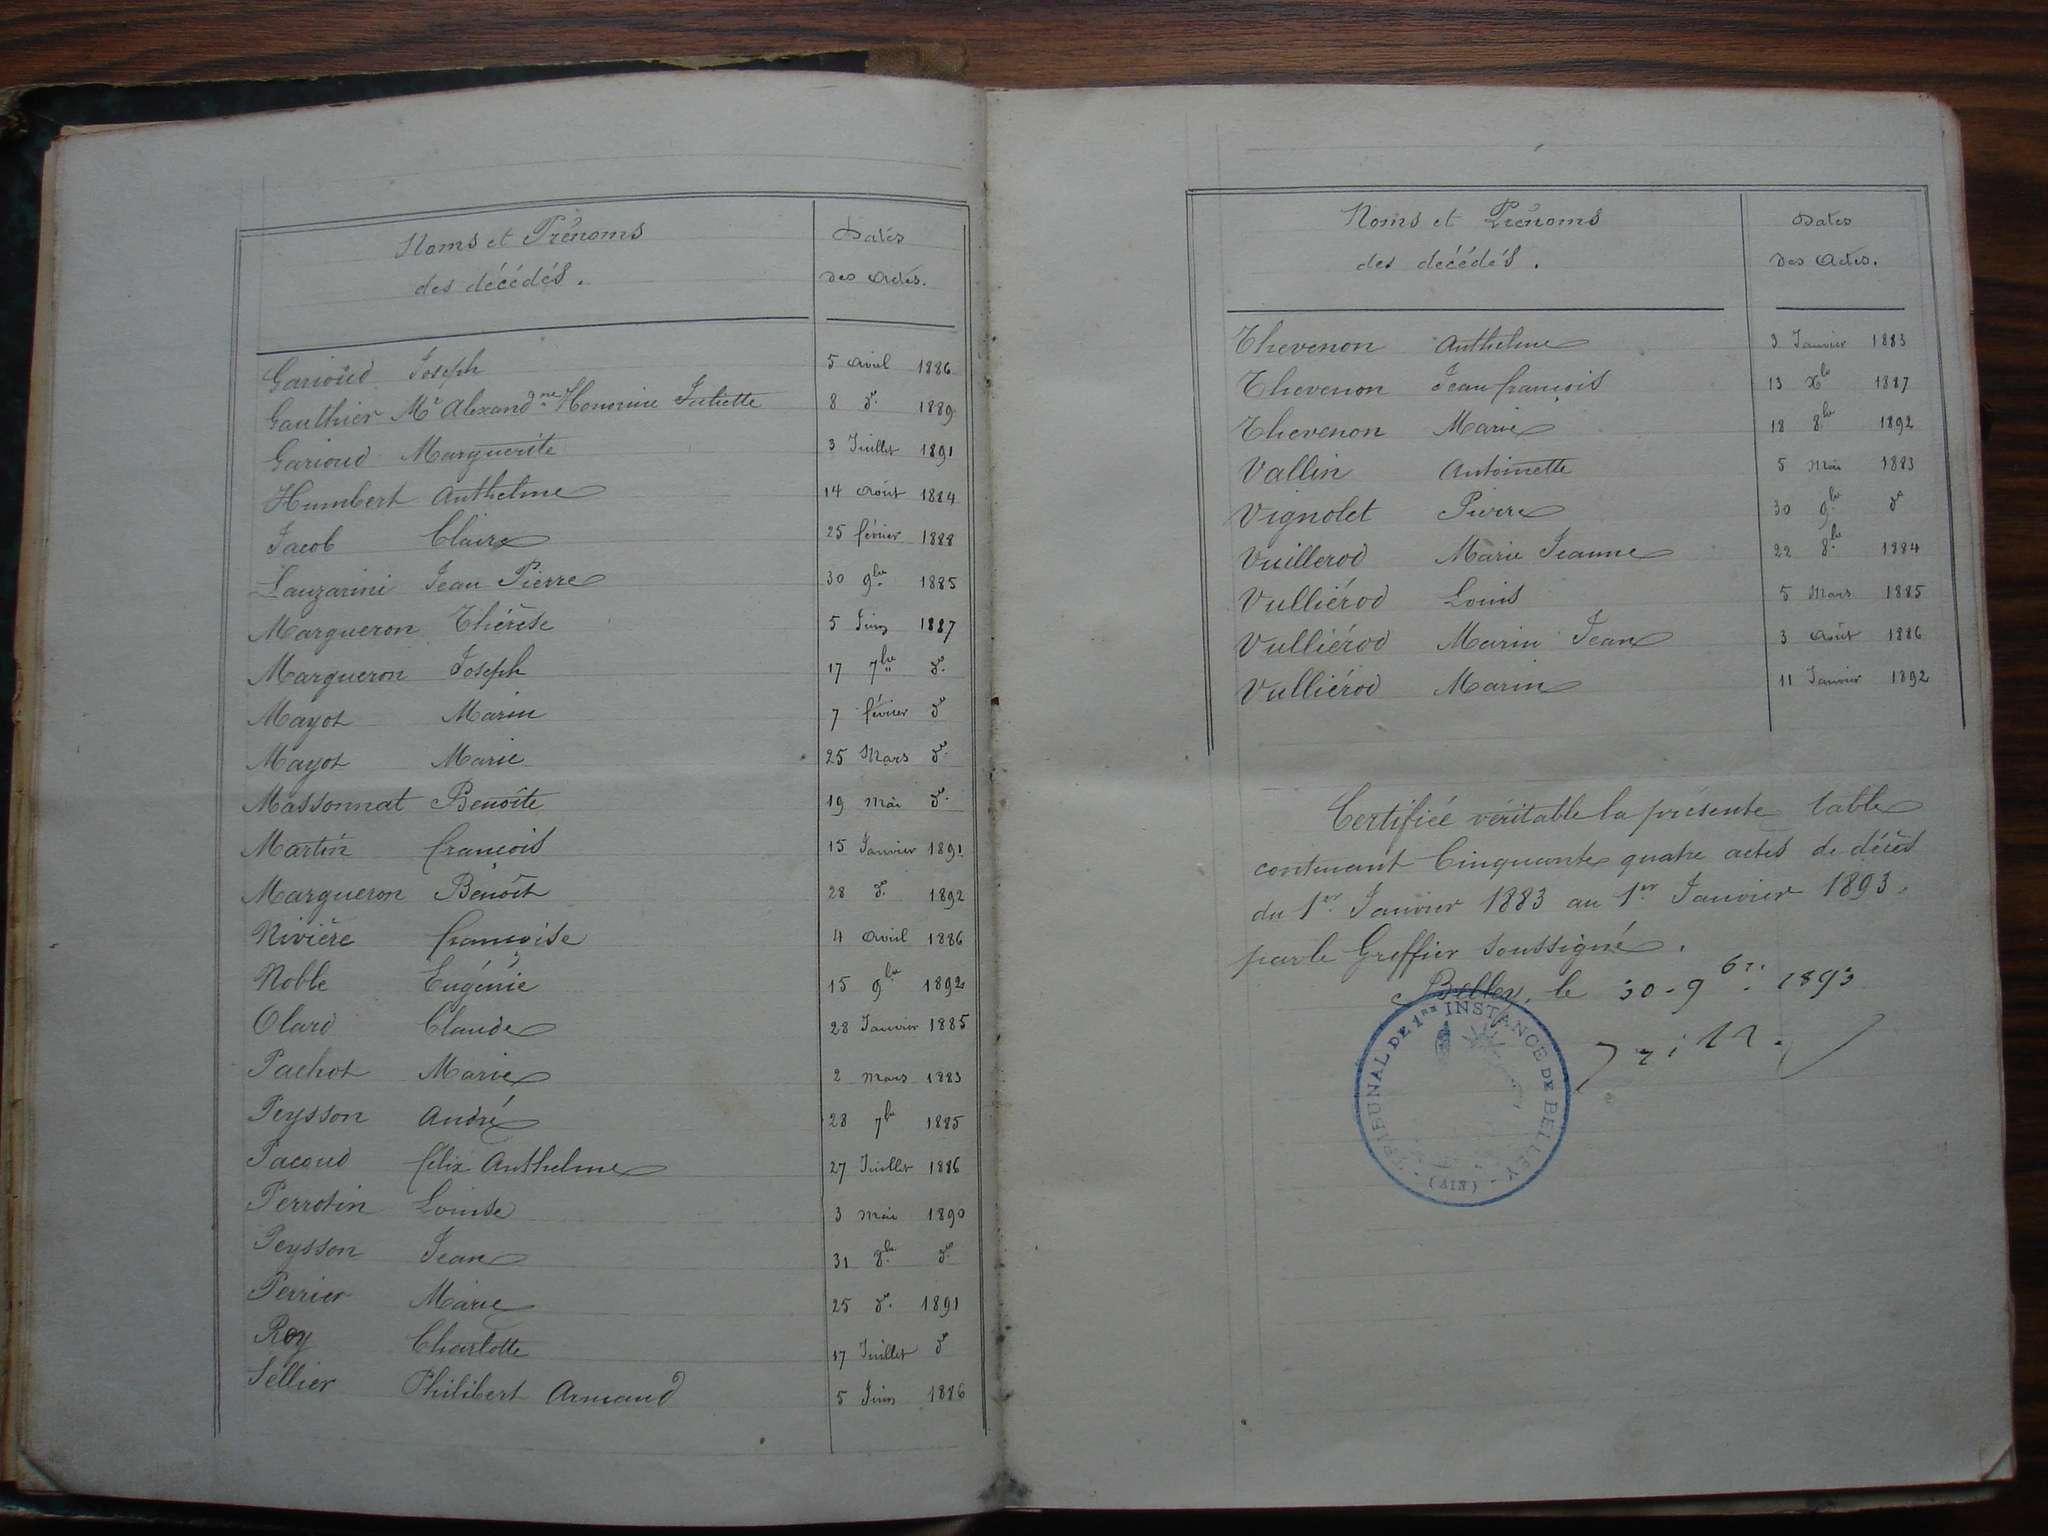 Noms et Prénoms
des décédés.
Dates
des Actes.
Garioud Joseph 5 avril 1886
Gauthier Mie Alexandne Honorine Juliette 8 do 1889
Garioud Marguerite 3 Juillet 1891
Humbert Anthelme 14 Août 1884
Jacob Claire 25 février 1888
Lauzarini Jean Pierre 30 9bre 1885
Margueron Thérèse 5 Juin 1887
Margueron Joseph 17 7bre do
Mayot Marin 7 février do
Mayot Marie 25 Mars do
Massonnat Benoîte 19 Mai do
Martin françois 15 Janvier 1891
Margueron Benoît 28 do 1892
Nivière françoise 4 avril 1886
Noble Eugénie 15 9bre 1892
Olard Claude 28 Janvier 1885
Pachot Marie 2 mars 1883
Peysson André 28 7bre 1885
Pacoud félix Anthelme 27 Juillet 1886
Perrotin Louise 3 mai 1890
Peysson Jean 31 8bre do
Perrier Marie 25 do 1891
Roy Charlotte 17 Juillet do
Sellier Philibert Armand 5 Juin 1886
Noms et Prénoms
des décédés.
Dates
des Actes.
Thevenon Anthelme 3 Janvier 1883
Thevenon Jean françois 13 Xbre 1887
Thevenon Marie 18 8bre 1892
Vallin Antoinette 5 Mai 1883
Vignolet Pierre 30 9bre do
Vuillerod Marie Jeanne 22 8bre 1884
Vulliérod Louis 5 Mars 1885
Vulliérod Marin Jean 3 Août 1886
Vulliérod Marin 11 Janvier 1892
Certifiée véritable la présente table
contenant Cinquante quatre actes de décès
du 1er Janvier 1883 au 1er Janvier 1893,
par le Greffier soussigné.
Belley, le 30 - 9bre 1893
TRIBUNAL DE 1RE INSTANCE DE BELLEY
(AIN)